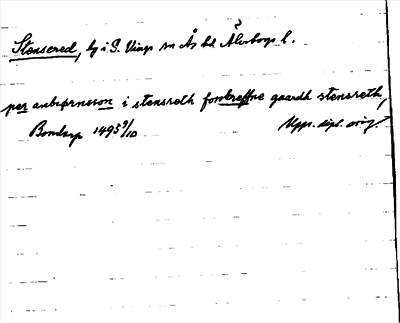 Stensered, by i S. Vings sn Ås hd Älvsborgs l.
per anbrørnsson i stensreth forskreffne gaardh stensreth,
Bondsp 1495 9/10 Upps. dipl. orig.